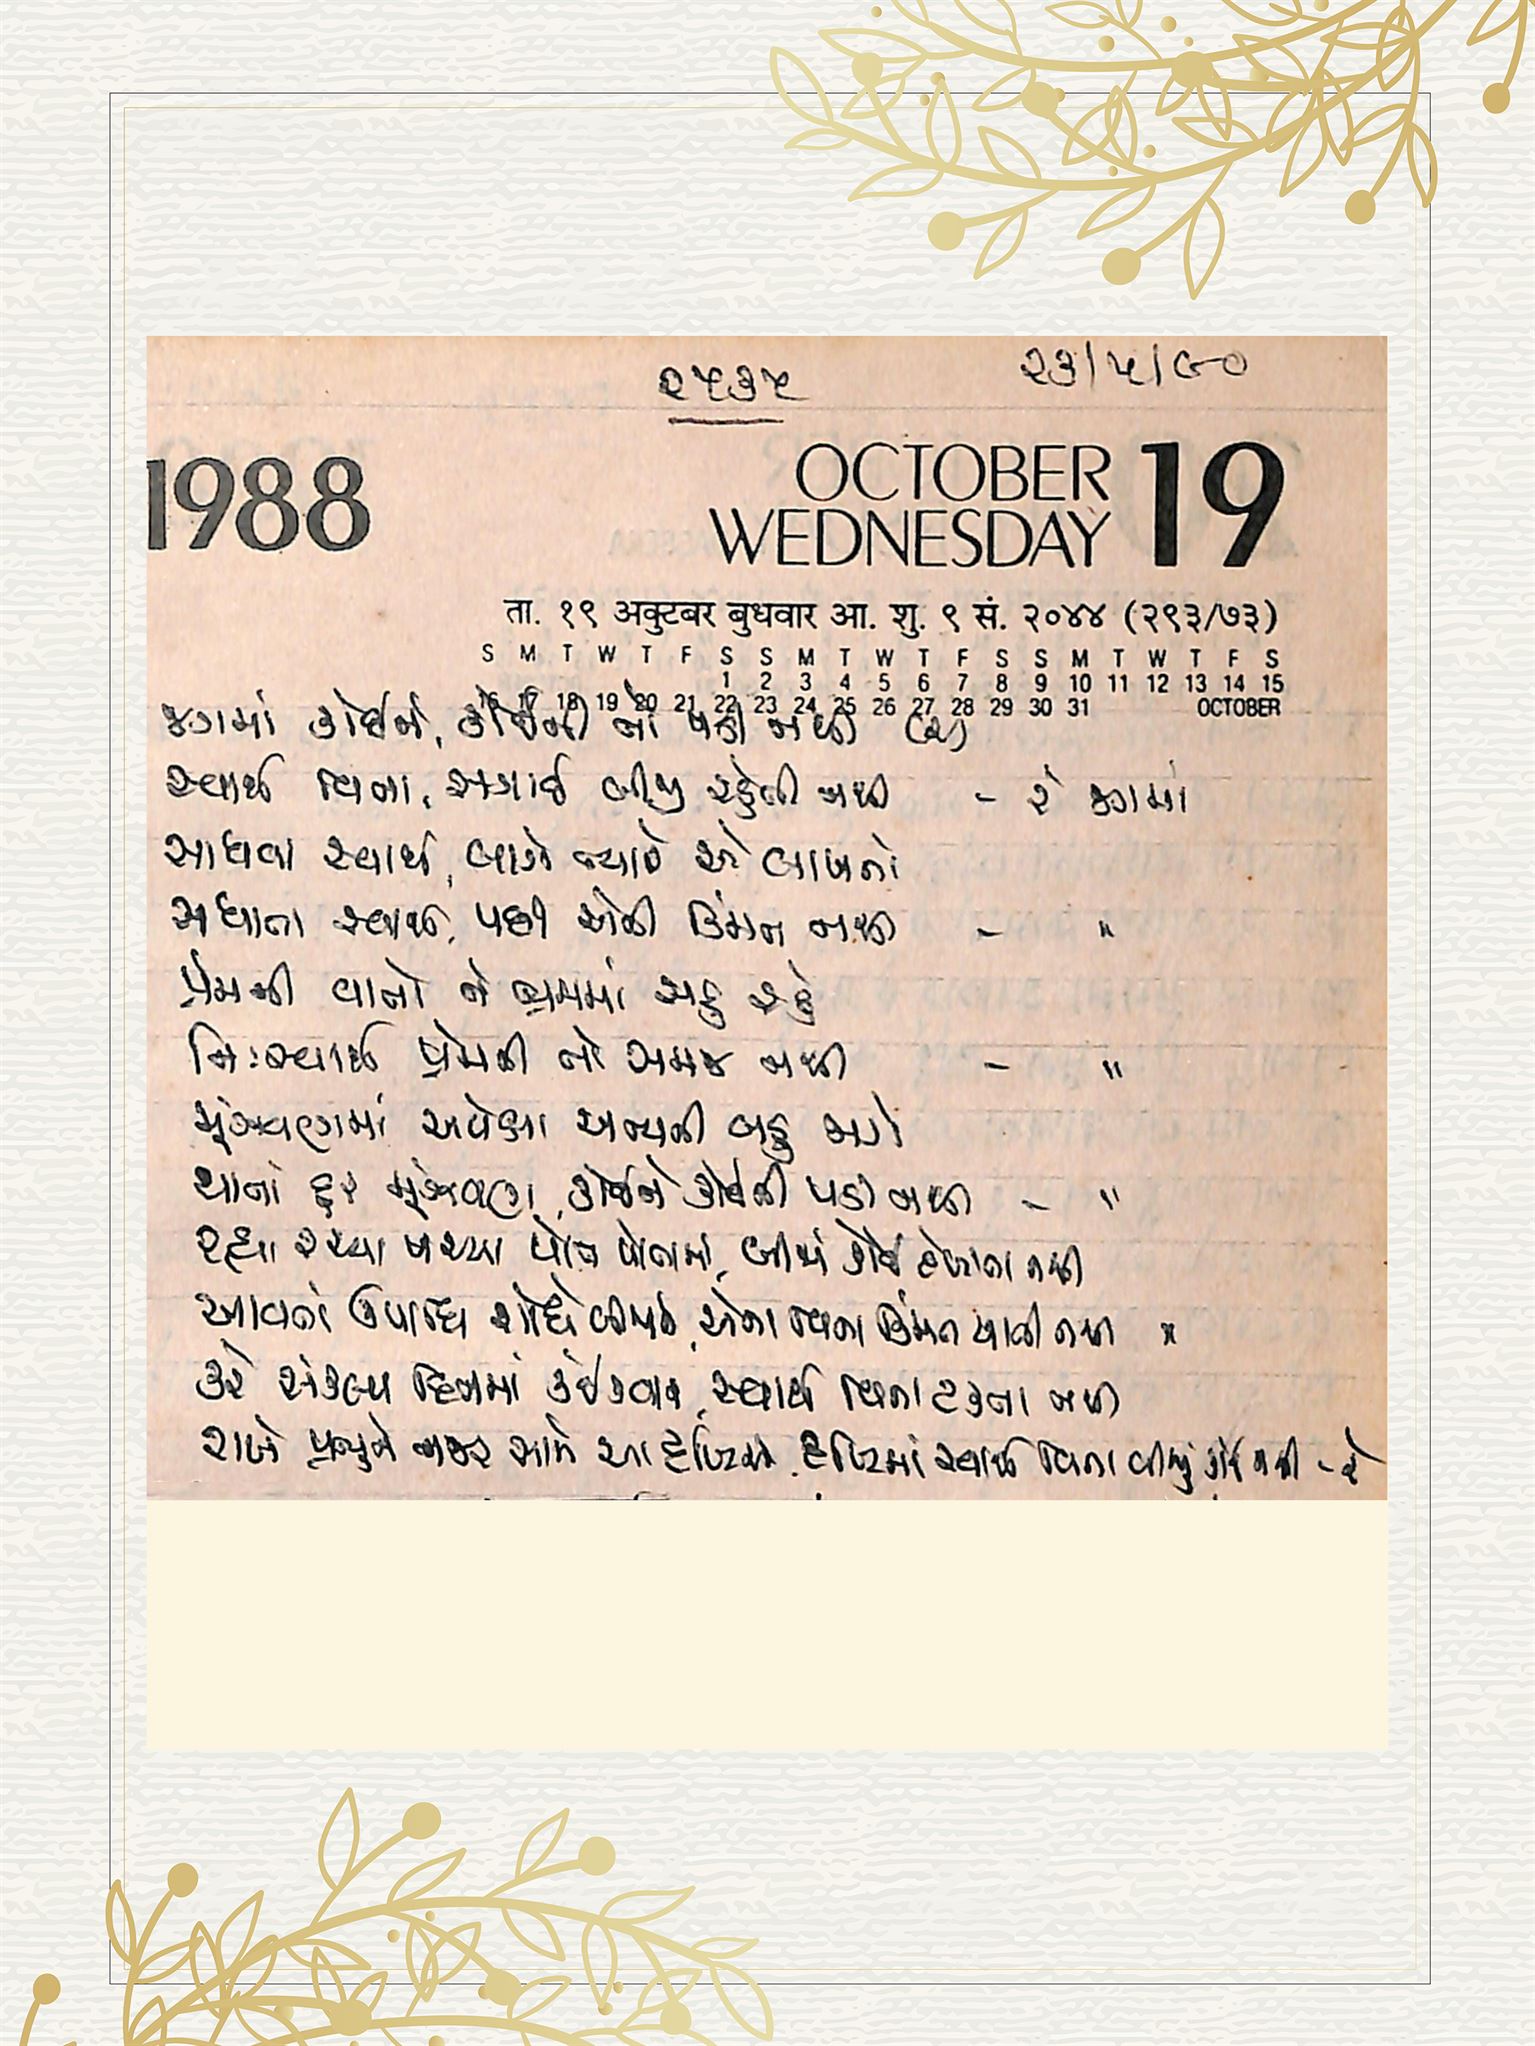 ૨૫૩૫
૨૩/૫/૯૦
1988
OCTOBER 19
WEDNESDAY
ता. १९ अक्टुबर बुधवार आ. शु. ९ सं. २०४४ (२९३/७३)
S M T W T F S S M T W T F S S M T W T F S
1 2 3 4 5 6 7 8 9 10 11 12 13 14 15
17 18 19 20 21 22 23 24 25 26 27 28 29 30 31 OCTOBER
જગમાં કોઈને, કોઈની તો પડી નથી (૨)
સ્વાર્થ વિના, સગાઈ બીજી રહેતી નથી - રે જગમાં
સાધવા સ્વાર્થ, લાગે જ્યારે એ લાખનો
સધાતા સ્વાર્થ, પછી એની કિંમત નથી - "
પ્રેમની વાતો ને ભ્રમમાં સહુ રહે
નિઃસ્વાર્થ પ્રેમની તો સમજ નથી - "
મૂંઝવણમાં અપેક્ષા અન્યની બહુ જાગે
થાતાં દુર મૂંઝવણ, કોઈને કોઈની પડી નથી - "
રહ્યા રચ્યા પચ્યા પોત પોતામાં, બીજાં કોઈ દેખાતા નથી
આવતાં ઉપાધિ શોધે બીજાને, એના વિના કિંમત ખાલી નથી "
કરે સંકલ્પ દિલમાં કંઈકવાર, સ્વાર્થ વિના ટકતા નથી
રાખે પ્રભુને નજર સામે આ દૃષ્ટિએ, દૃષ્ટિમાં સ્વાર્થ વિના બીજું કોઈ નથી - રે